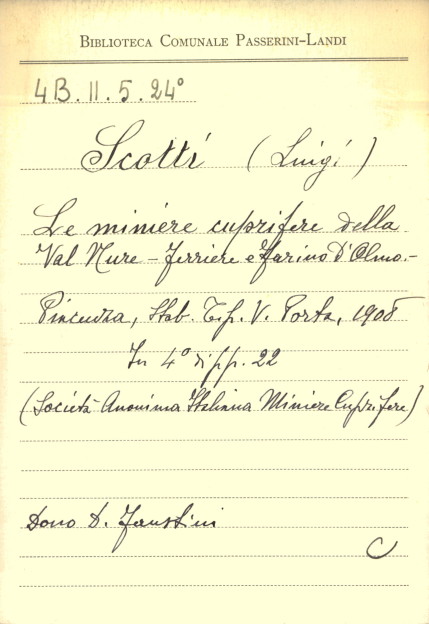 BIBLIOTECA COMUNALE PASSERINI-LANDI
4B.II.5.24°
Scotti (Luigi)
Le miniere cuprifere della
Val Nure - Ferriere e Farino D'Olmo.-
Piacenza, Stab. Tip. V. Porta, 1908
In 4° di pp. 22
(Società Anonima Italiana Miniere Cuprifere)
Dono D. Faustini
C